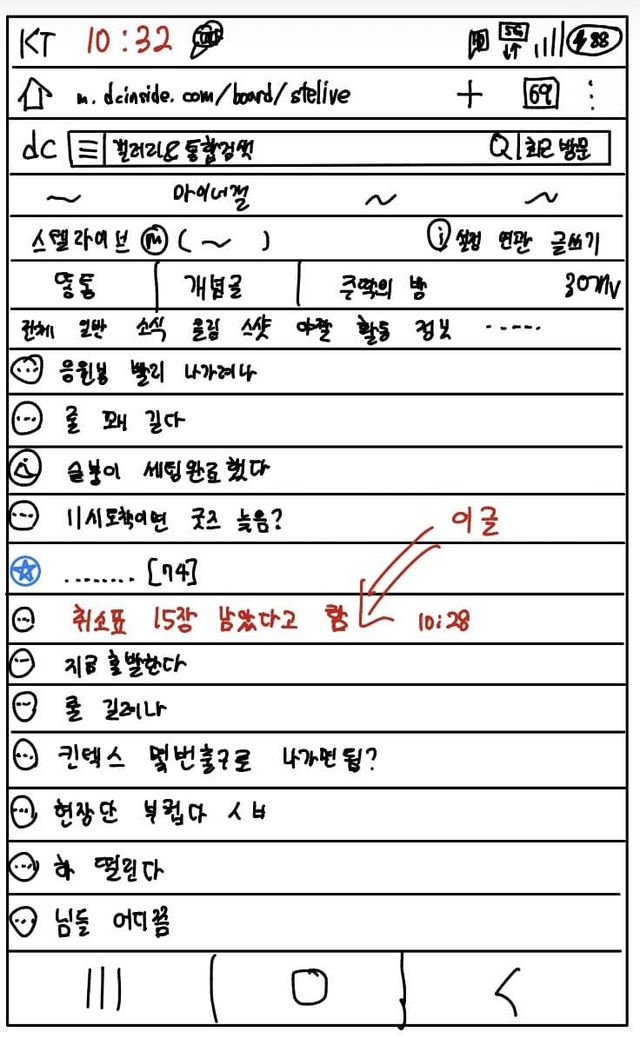 KT 10:32 5G 88
m.dcinside.com/board/stelive + 69
dc 갤러리& 통합검색 최근 방문
마이너갤
스텔라이브 m ( ~ ) i 설정 연관 글쓰기
개념글 주딱의 방
전체 일반 소식 올림 스샷 야짤 활동 정보 ······
응원봉 빨리 나가려나
줄 꽤 길다
슬붕이 세팅완료했다
11시도착이면 굿즈 늦음?
이글
........ [74]
취소표 15장 남았다고 함 10:28
지금 출발한다
줄 길려나
킨텍스 몇번출구로 나가면됨?
현장단 부럽다 ㅅㅂ
하 떨린다
님들 어디쯤